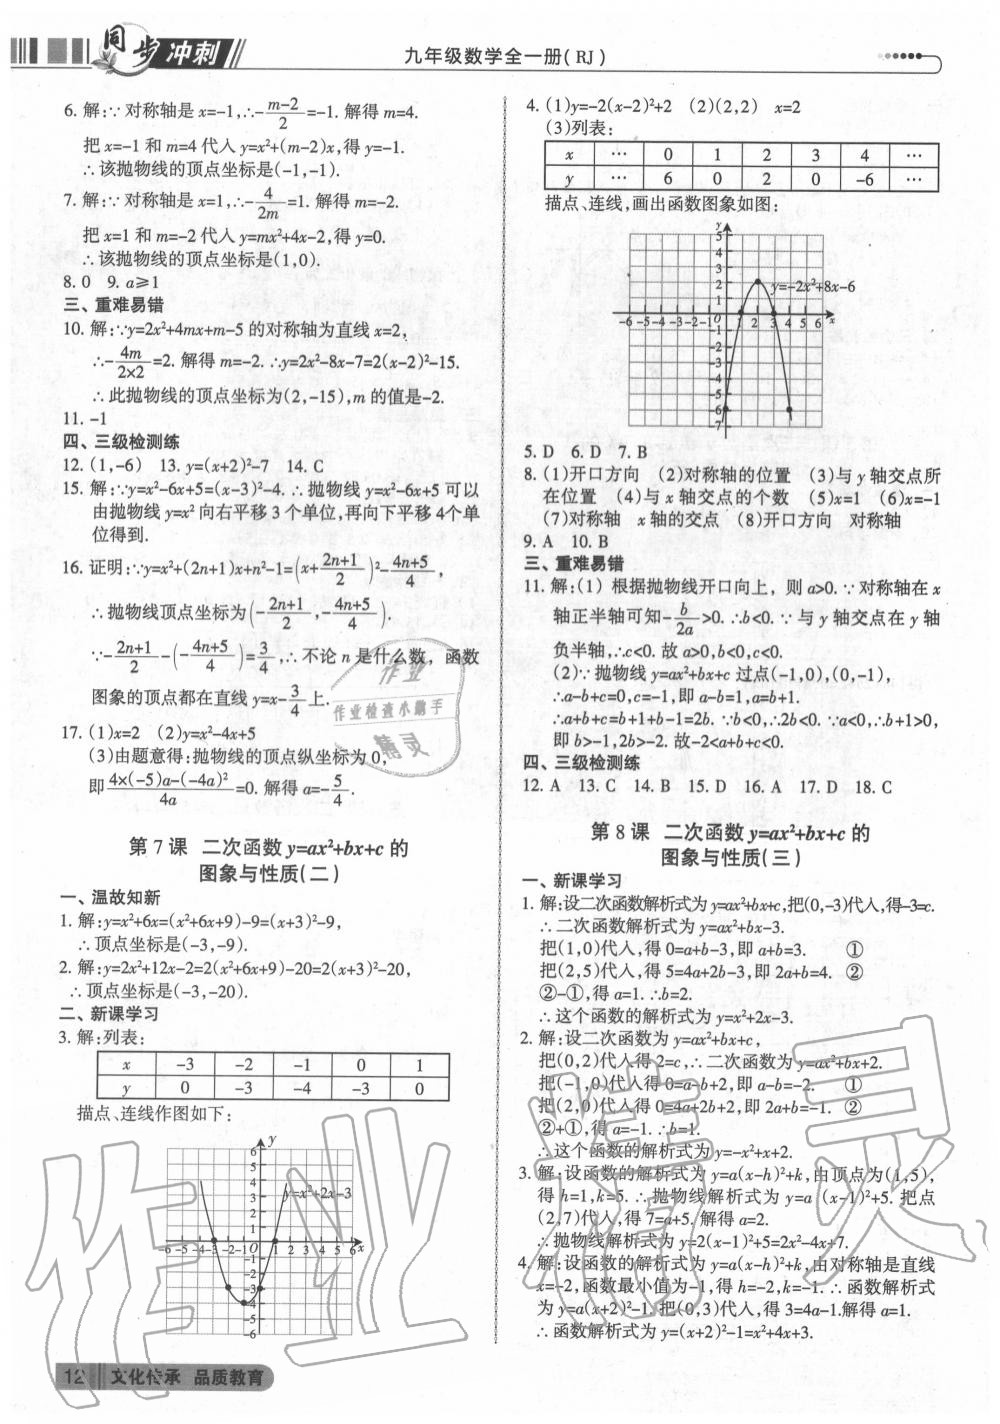 同步冲刺
九年级数学全一册(RJ)
6. 解:∵对称轴是 x=-1,∴-\frac{m-2}{2}=-1. 解得 m=4.
把 x=-1 和 m=4 代入 y=x²+(m-2)x,得 y=-1.
∴该抛物线的顶点坐标是(-1,-1).
7. 解:∵对称轴是 x=1,∴-\frac{4}{2m}=1. 解得 m=-2.
把 x=1 和 m=-2 代入 y=mx²+4x-2,得 y=0.
∴该抛物线的顶点坐标是(1,0).
8. 0 9. a≥1
三、重难易错
10. 解:∵y=2x²+4mx+m-5 的对称轴为直线 x=2,
∴-\frac{4m}{2×2}=2. 解得 m=-2. ∴y=2x²-8x-7=2(x-2)²-15.
∴此抛物线的顶点坐标为(2,-15),m 的值是-2.
11. -1
四、三级检测练
12. (1,-6) 13. y=(x+2)²-7 14. C
15. 解:∵y=x²-6x+5=(x-3)²-4. ∴抛物线 y=x²-6x+5 可以
由抛物线 y=x² 向右平移 3 个单位,再向下平移 4个单
位得到.
16. 证明:∵y=x²+(2n+1)x+n²-1=(x+\frac{2n+1}{2})²-\frac{4n+5}{4},
∴抛物线顶点坐标为(-\frac{2n+1}{2},-\frac{4n+5}{4}).
∵-\frac{2n+1}{2}-(-\frac{4n+5}{4})=\frac{3}{4},∴不论 n 是什么数,函数
图象的顶点都在直线 y=x-\frac{3}{4}上.
17. (1)x=2 (2)y=x²-4x+5
(3)由题意得:抛物线的顶点纵坐标为 0,
即\frac{4×(-5)a-(-4a)²}{4a}=0. 解得 a=-\frac{5}{4}.
第 7 课 二次函数 y=ax²+bx+c 的
图象与性质(二)
一、温故知新
1. 解:y=x²+6x=(x²+6x+9)-9=(x+3)²-9,
∴顶点坐标是(-3,-9).
2. 解:y=2x²+12x-2=2(x²+6x+9)-20=2(x+3)²-20,
∴顶点坐标是(-3,-20).
二、新课学习
3. 解:列表:
x -3 -2 -1 0 1
y 0 -3 -4 -3 0
描点、连线作图如下:
y
6
5
4
3
2
1
y=x²+2x-3
-6 -5 -4 -3 -2 -1 O 1 2 3 4 5 6 x
-2
-3
-4
-5
-6
4. (1)y=-2(x-2)²+2 (2)(2,2) x=2
(3)列表:
x … 0 1 2 3 4 …
y … 6 0 2 0 -6 …
描点、连线,画出函数图象如图:
y
5
4
3
2
1
y=-2x²+8x-6
-6 -5 -4 -3 -2 -1 O 1 2 3 4 5 6 x
-1
-2
-3
-4
-5
-6
-7
5. D 6. D 7. B
8. (1)开口方向 (2)对称轴的位置 (3)与 y 轴交点所
在位置 (4)与 x 轴交点的个数 (5)x=1 (6)x=-1
(7)对称轴 x 轴的交点 (8)开口方向 对称轴
9. A 10. B
三、重难易错
11. 解:(1) 根据抛物线开口向上, 则 a>0. ∵对称轴在 x
轴正半轴可知-\frac{b}{2a}>0. ∴b<0. ∵与 y 轴交点在 y 轴
负半轴,∴c<0. 故 a>0,b<0,c<0.
(2)∵抛物线 y=ax²+bx+c 过点(-1,0),(0,-1),
∴a-b+c=0,c=-1,即 a-b=1,a=b+1.
∴a+b+c=b+1+b-1=2b. ∵b<0,∴2b<0. ∵a<0,∴b+1>0,
即 b>-1,2b>-2. 故-2<a+b+c<0.
四、三级检测练
12. A 13. C 14. B 15. D 16. A 17. D 18. C
第 8 课 二次函数 y=ax²+bx+c 的
图象与性质(三)
一、新课学习
1. 解:设二次函数解析式为 y=ax²+bx+c,把(0,-3)代入,得-3=c.
∴二次函数解析式为 y=ax²+bx-3.
把(1,0)代入,得 0=a+b-3,即 a+b=3. ①
把(2,5)代入,得 5=4a+2b-3,即 2a+b=4. ②
②-①,得 a=1. ∴b=2.
∴这个函数的解析式为 y=x²+2x-3.
2. 解:设二次函数为 y=ax²+bx+c,
把(0,2)代入得 2=c,∴二次函数为 y=ax²+bx+2.
把(-1,0)代入得 0=a-b+2,即 a-b=-2. ①
把(2,0)代入得 0=4a+2b+2,即 2a+b=-1. ②
②+①,得 a=-1. ∴b=1.
∴这个函数的解析式为 y=-x²+x+2.
3. 解:设函数的解析式为 y=a(x-h)²+k,由顶点为(1,5),
得 h=1,k=5. ∴抛物线解析式为 y=a (x-1)²+5. 把点
(2,7)代入,得 7=a+5. 解得 a=2.
∴抛物线解析式为 y=2(x-1)²+5=2x²-4x+7.
4. 解:设函数的解析式为 y=a(x-h)²+k,由对称轴是直线
x=-2,函数最小值为-1,得 h=-2,k=-1. ∴函数解析式
为 y=a(x+2)²-1. 把(0,3)代入,得 3=4a-1.解得 a=1.
∴函数解析式为 y=(x+2)²-1=x²+4x+3.
12 文化传承 品质教育
作业
作业检查小帮手
精灵
作业精灵